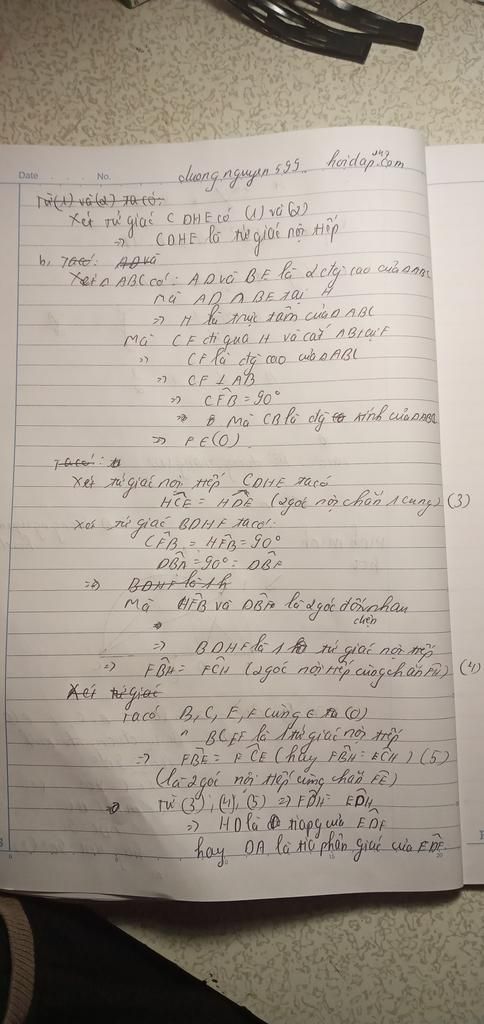 Date No. duongnguyen599.. hoidap247.com
Từ (1) và (2) ta có:
Xét tứ giác CDHE có (1) và (2)
=> CDHE là tứ giác nội tiếp
b, Ta có: AD và
Xét Δ ABC có: AD và BE là 2 đg cao của Δ ABC
mà AD ∩ BE tại H
=> H là trực tâm của Δ ABC
Mà CF đi qua H và cắt AB tại F
=> CF là đg cao của Δ ABC
=> CF ⊥ AB
=> CFB = 90°
Mà CB là đg kính của
=> F ∈ (O)
Ta có:
Xét tứ giác nội tiếp CDHE ta có
HCE = HDE (2 góc nội chắn 1 cung) (3)
Xét tứ giác BDHF ta có:
CFB = HFB = 90°
DBA = 90° = DBF
=> BDHF là 1 h
Mà HFB và DBF là 2 góc đối nhau
=> BDHF là 1 tứ giác nội tiếp
=> FBH = FCH (2 góc nội tiếp cùng chắn FH) (4)
Xét tứ giác
Ta có B, C, E, F cùng ∈ (O)
BCEF là 1 tứ giác nội tiếp
=> FBE = FCE (hay FBH = ECH) (5)
(là 2 góc nội tiếp cùng chắn FE)
Từ (3), (4), (5) => FDH = EDH
=> HD là tia pg của EDF
hay DA là tia phân giác của EDF